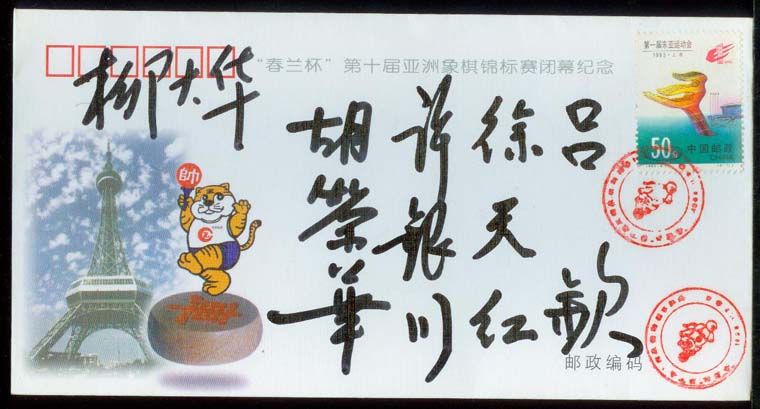 "春兰杯"第十届亚洲象棋锦标赛闭幕纪念
柳大华
胡荣華
许银川
徐天红
吕钦
帥
第一届东亚运动会
1993·上海
50分
中国邮政
CHINA
邮政编码